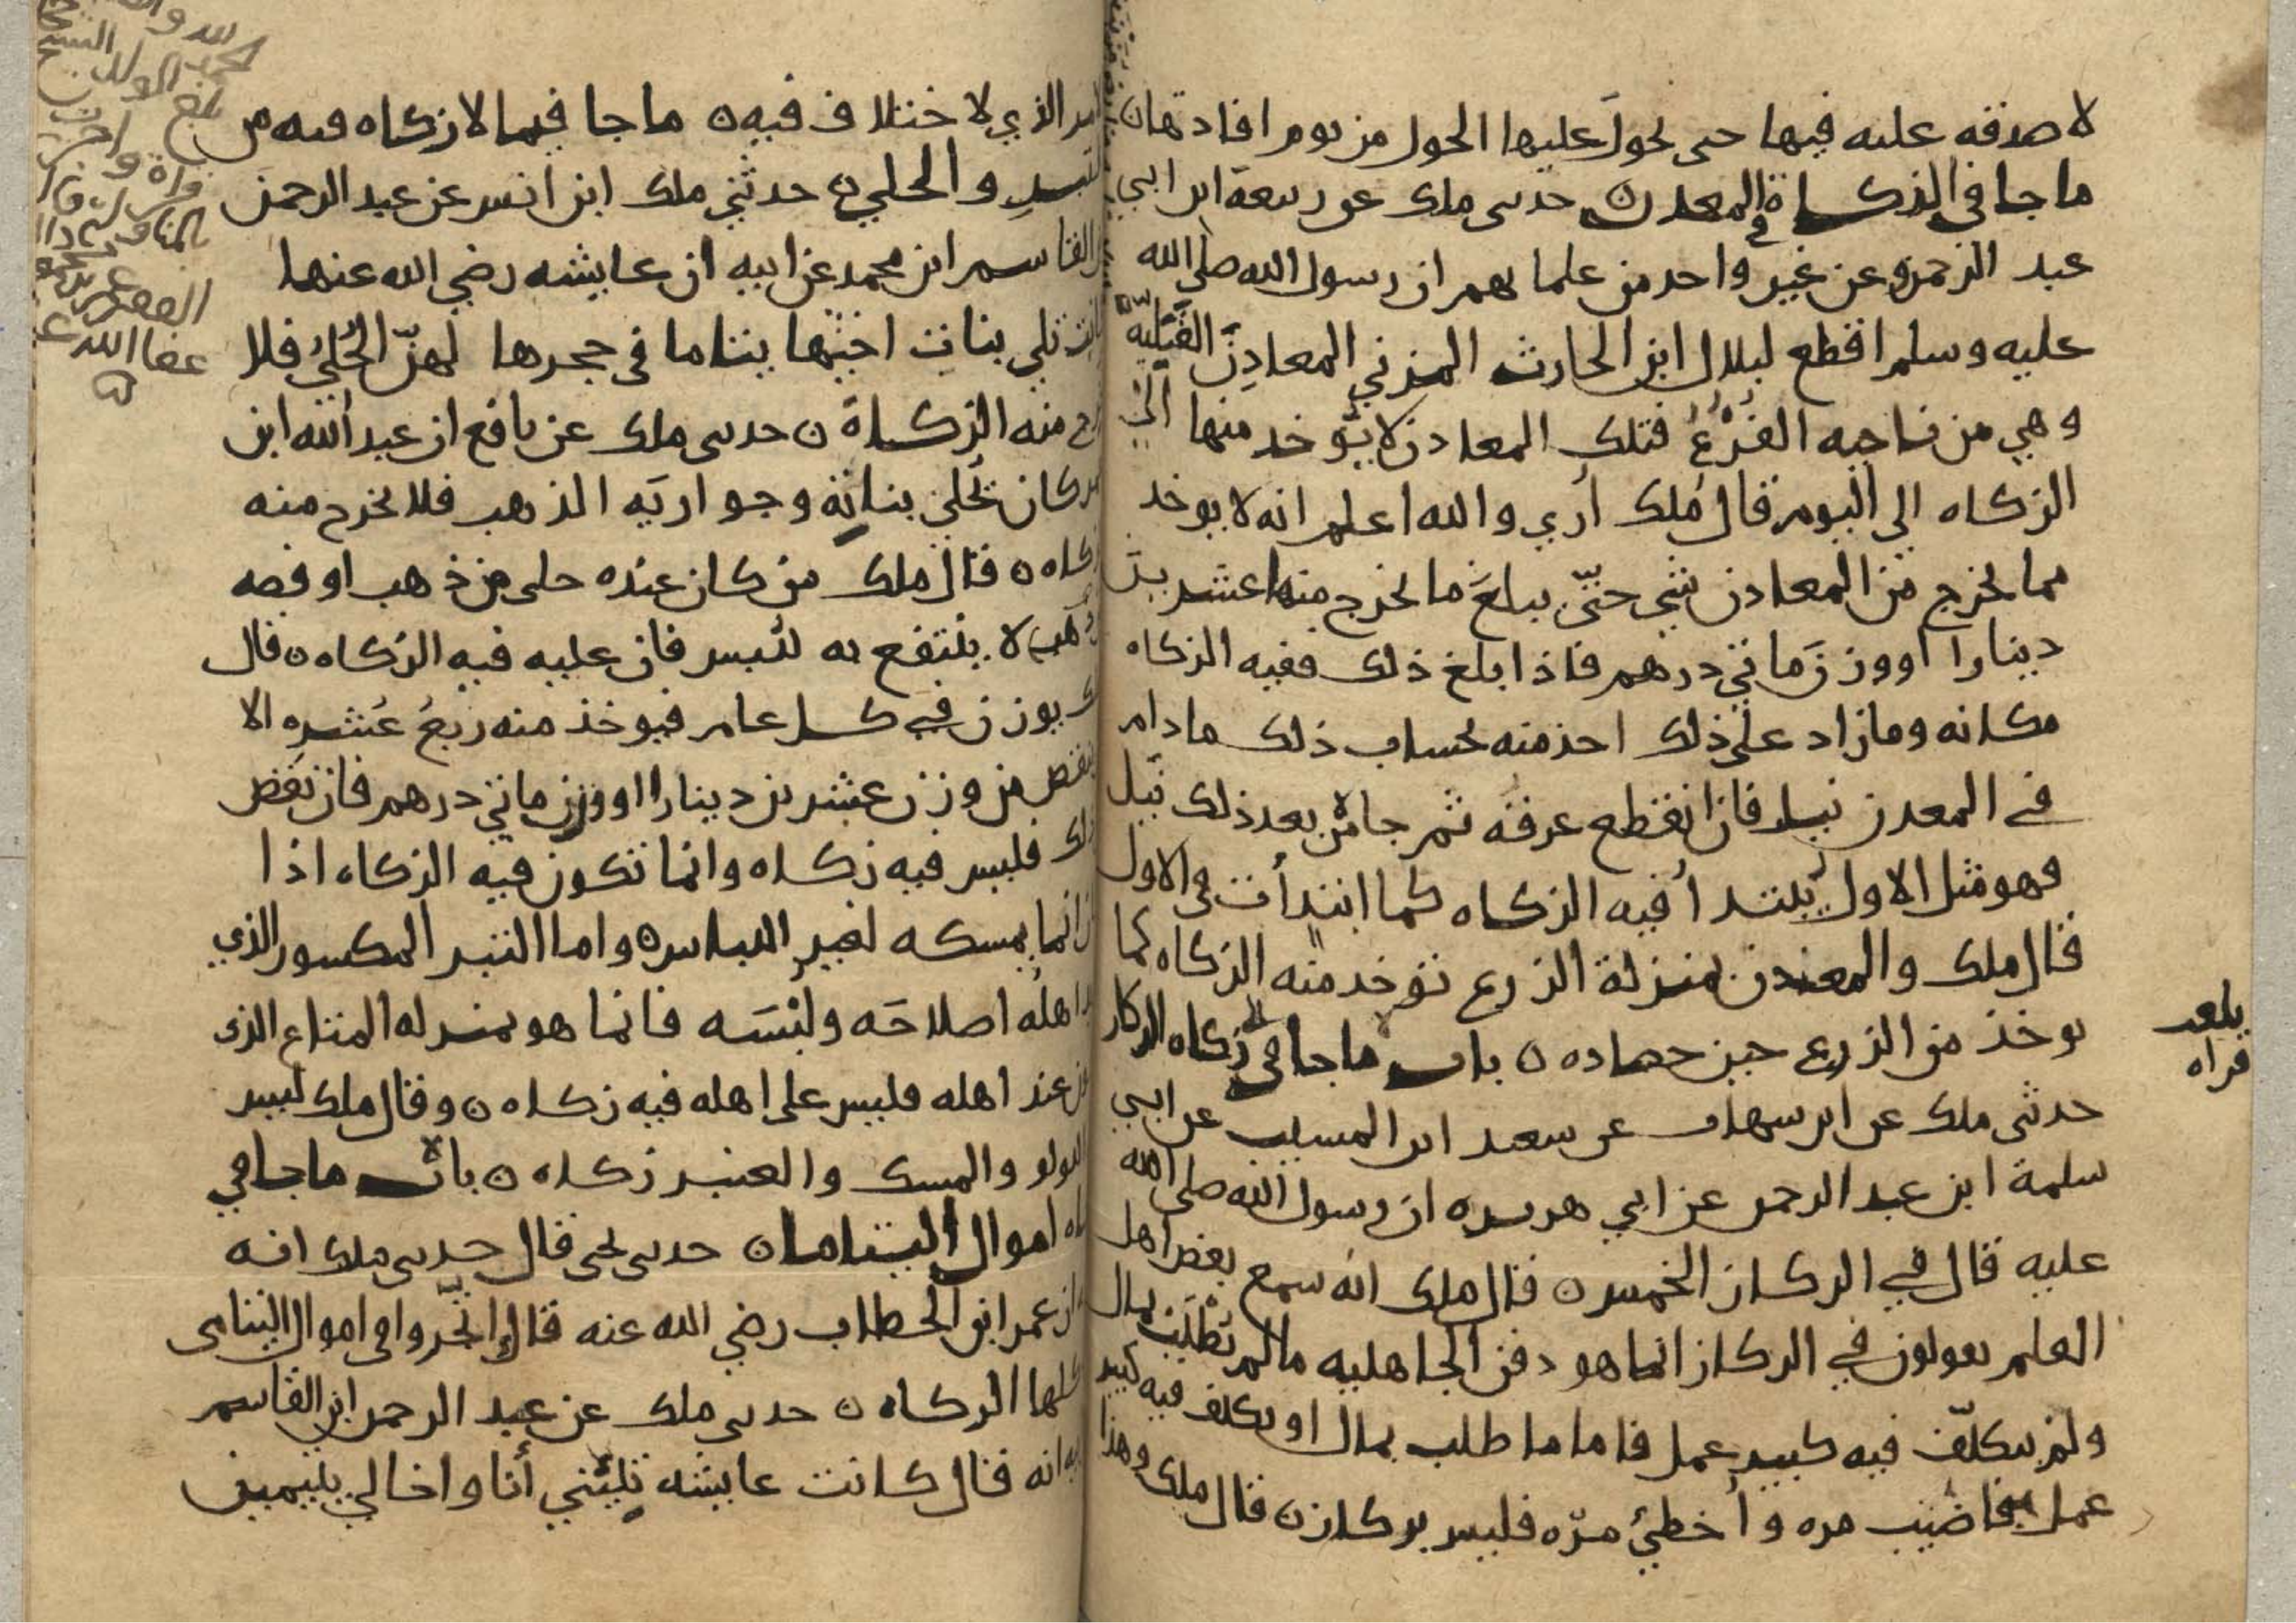 لا صدقه عليه فيها حتى يحول عليها الحول من يوم افادتها ن
ما جا في الزكاة في المعدن ن حدثنى ملك عن ربيعة ابن ابي
عبد الرحمن وعن غير واحد من علمايهم ان رسول الله صلى الله
عليه وسلم اقطع لبلال ابن الحارث المزني المعادِنَ القَبَليّه
وهي من ناحيه الفُرْعُ فتلك المعادن لا يؤخد منها الي
الزكاه الى اليوم قال ملك أري والله اعلم انه لا يوخد
مما يخرج من المعادن شي حتّى يبلغَ ما يخرج منها عشرين
دينارا او وزن مأتي درهم فاذا بلغ ذلك ففيه الزكاه
مكانه وما زاد على ذلك اخذ منه بحساب ذلك ما دام
في المعدن نيل فان انقطع عرقه ثم جا من بعد ذلك نيل
فهو مثل الاول يبتدأ فيه الزكاه كما ابتدأت في الاول
قال ملك والمعدن بمنزلة الزرع تؤخد منه الزكاه كما
يوخذ من الزرع حين حصاده ن باب ما جا في زكاه الركاز
حدثنى ملك عن ابن شهاب عن سعيد ابن المسيب عن ابي
سلمة ابن عبد الرحمن عن ابي هريره ان رسول الله صلى الله
عليه قال في الركاز الخمس ن قال ملك انه سمع بعض اهل
العلم يقولون في الركاز انما هو دفن الجاهليه ما لم يُطْلَب بمال
ولم يتكلّف فيه كبير عمل فاما ما طلب بمال او تكلف فيه كبير
عمل فاصيب مره وأخطئ مرّه فليس بركاز ن قال ملك وهذا
بلغت
قراه
الامر الذي لا ختلاف فيه ن ما جا فيما لا زكاه فيه من
التبر والحلي ن حدثني ملك ابن انس عن عبد الرحمن
القاسم ابن محمد عن ابيه ان عايشه رضي الله عنها
كانت تلي بنات اخيها يتاما في حجرها لهنّ الحُليُ فلا
تخرج منه الزكاة ن حدثنى ملك عن نافع ان عبد الله ابن
عمر كان يحلي بناته وجواريه الذهب فلا يخرج منه
زكاه ن قال ملك من كان عنده حلى من ذهب او فضه
لا ينتفع به للبس فان عليه فيه الزكاه ن قال
يوزن في كل عام فيوخذ منه ربعُ عُشرِه الا
ينقص من وزن عشرين دينارا او وزن ماتي درهم فان نقص
ذلك فليس فيه زكاه وانما تكون فيه الزكاه اذا
كان انما يمسكه لغير اللباس ن واما التبر المكسور الذي
اهله اصلاحَه ولُبْسَه فانما هو بمنزله المتاع الذى
عند اهله فليس على اهله فيه زكاه ن وقال ملك ليس
اللولو والمسك والعنبر زكاه ن باب ما جا في
زكاه اموال اليتاما ن حدثنى يحيى قال حدثنى ملك انه
ان عمر ابن الخطاب رضي الله عنه قال اتّجروا في اموال اليتامى
تاكلها الزكاه ن حدثنى ملك عن عبد الرحمن ابن القاسم
ابيه انه قال كانت عايشه تليني أنا واخا لي يتيمين
الحمد لله
بلغ الولد الشيخ
قراة
عفا الله